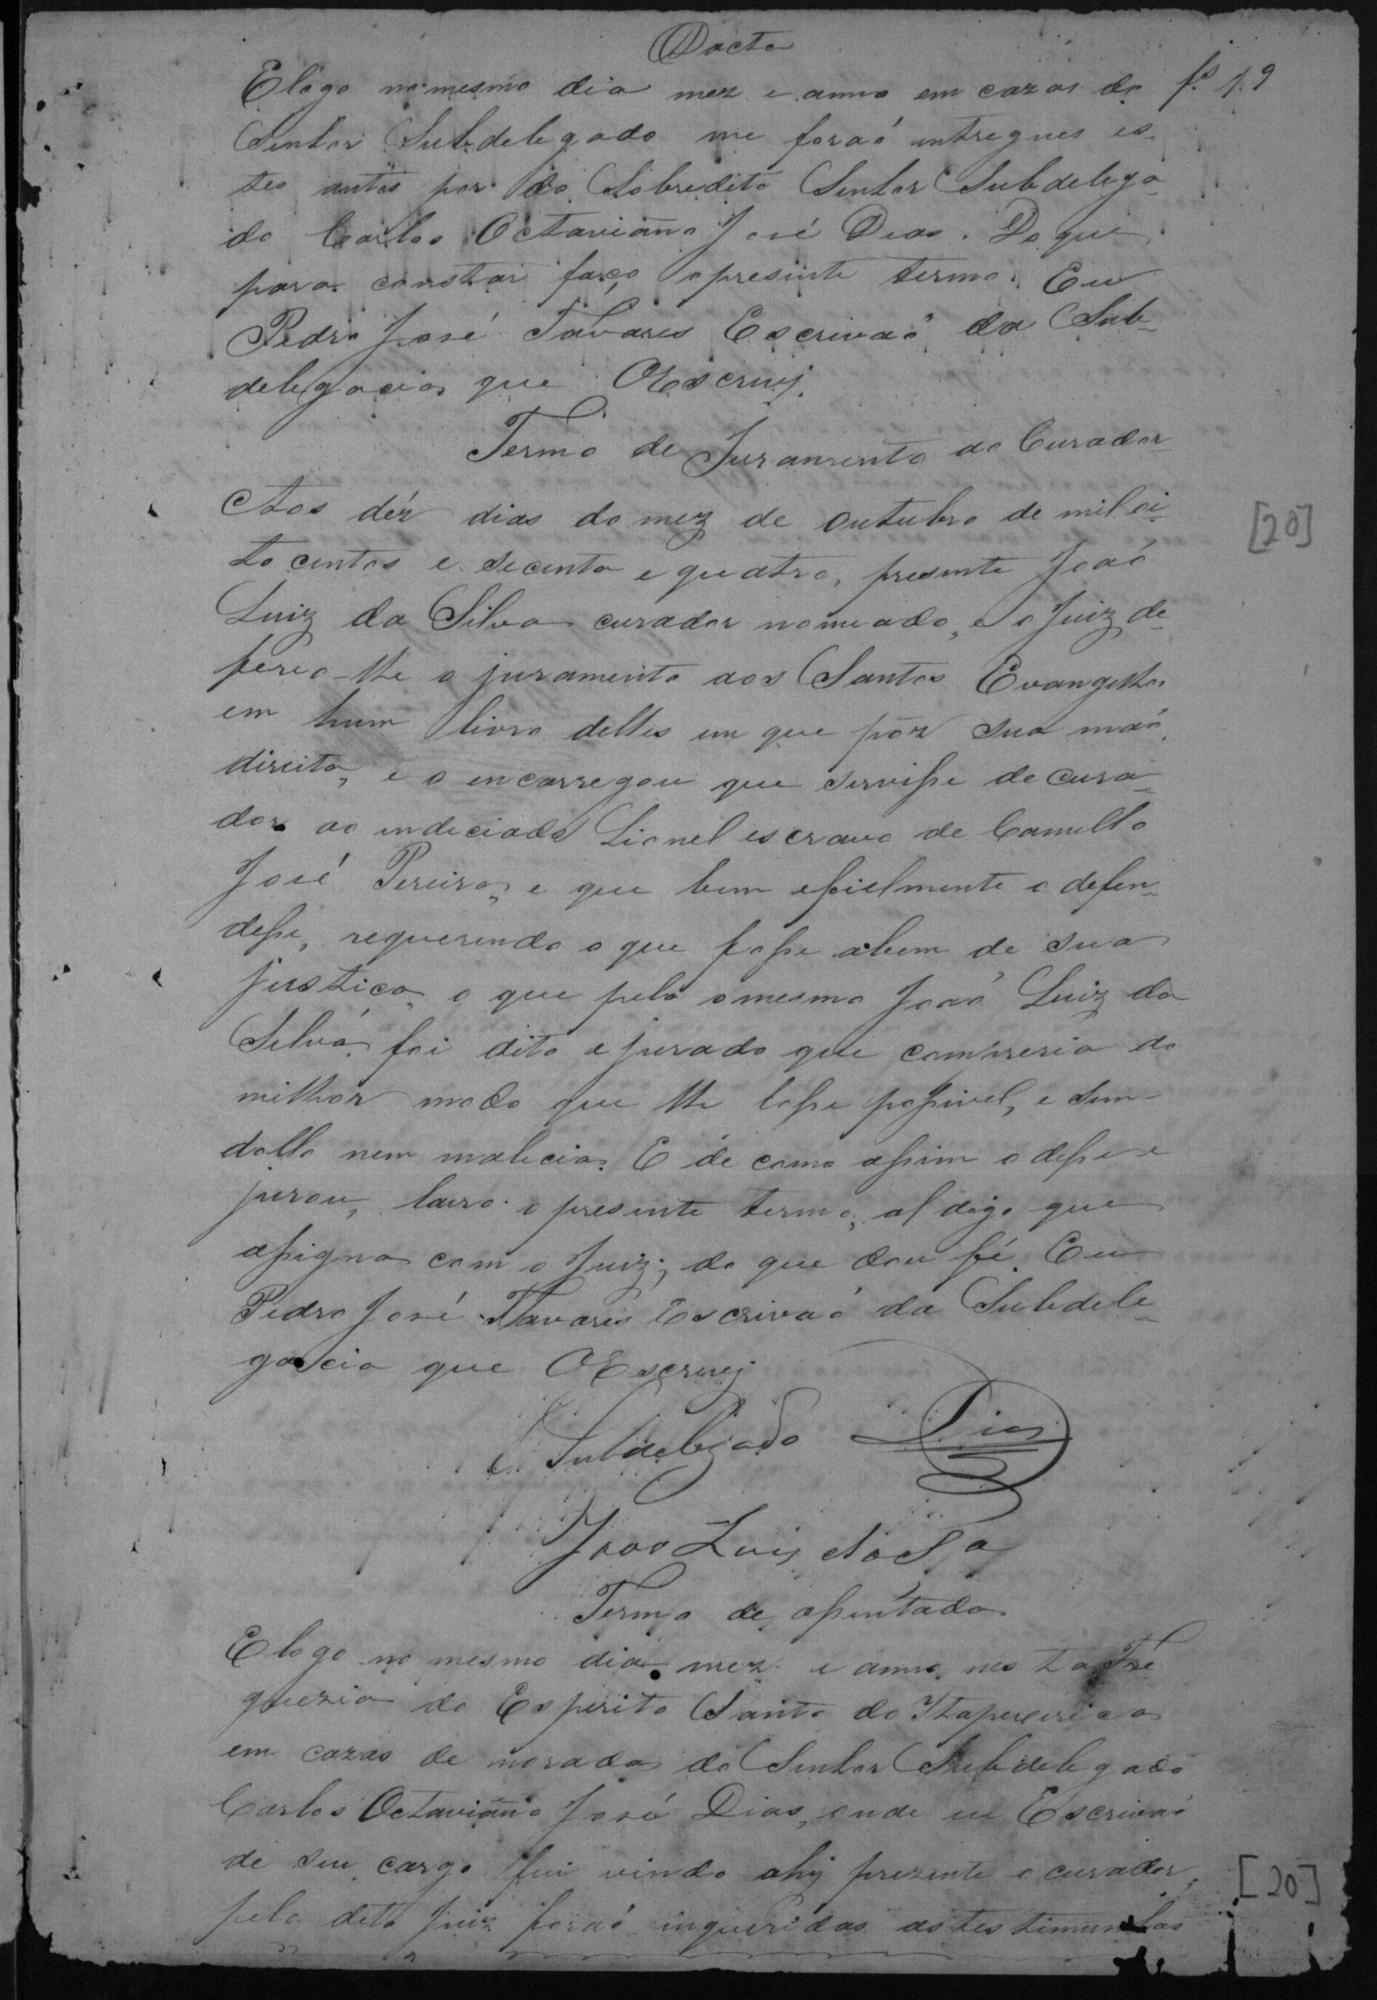 Dacta
E logo no mesmo dia mez e anno em cazas do fs. 19
Senhor Subdelegado me foraõ entregues es-
tes autos por do Sobredito Senhor Subdelega-
do Carlos Octaviano José Dias. Do que
para constar faço o presente termo. Eu
Pedro José Tavares Escrivaõ da Sub-
delegacia que OEscrevj.
Termo de Juramento do Curador
Aos déz dias do mez de outubro de mil oi-
to centos e secenta e quatro, presente Joaõ
Luiz da Silva curador nomeado, e o Juiz de-
ferio-lhe o juramento aos Santos Evangelhos
em hum livro delles em que pôz sua maõ
direita, e o encarregou que servisse de cura-
dor ao endeciado Lionel escravo de Camillo
José Pereira, e que bem e fielmente o defen-
desse, requerendo o que fosse a bem de sua
justica, o que pelo o mesmo Joaõ Luiz da
Silva foi dito e jurado que compreria do
milhor modo que lhe fosse possivel, e sem
dollo nem malicia. E de como assim o desse e
jurou, lavro o presente termo, al digo que
assigna com o Juiz; do que dou fé. Eu
Pedro José Tavares Escrivaõ da Subdele-
gacia que OEscrevj
Subdelegado Dias
Joao Luis da Sa
Termo de assentada
E logo no mesmo dia mez e anno nesta Fre
guezia do Espirito Santo da Itapecerica
em cazas de morada do Senhor Subdelegado
Carlos Octaviano José Dias, onde eu Escrivaõ
de seu cargo fui vindo ahj prezente o curador,
pelo dito Juiz foraõ inqueridas as testimunhas
[20]
[20]